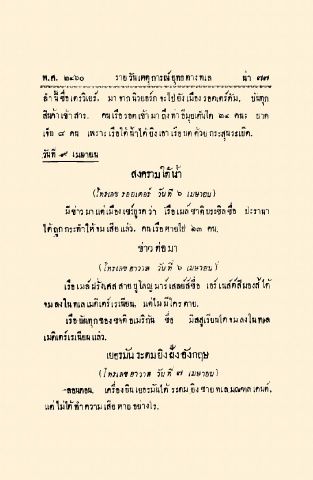 พ.ศ. ๒๔๖๐ รายวันเหตุการณ์ยุทธทางทเล น่า ๗๗
ลำนี้ชื่อเตรวิเยร์. มาจากนิวยอร์กจะไปยังเมืองรอตเตร์ดัม. บันทุก
สินค้าเข้าสาร. คนเรือรอดเข้ามาถึงท่าอีมุยเด็นโต ๒๔ คน: บาด
เจ็บ ๘ คน เพราะเรือใต้น้ำได้ยิงเอาเรือบดด้วยกระสุนระเบิด.
วันที่ ๙ เมษายน
สงครามใต้น้ำ
(โทรเลขรอยเตอร์ วันที่ ๖ เมษายน)
มีข่าวมาแต่เมืองเชร์บูรดว่า เรือเมล์ชาติบระซิลชื่อ ปะรานา
ได้ถูกกระทำให้จมเสียแล้ว. คนเรือตายไป ๒๓ คน.
ข่าวต่อมา
(โทรเลขฮาวาส วันที่ ๖ เมษายน)
เรือเมล์ฝรั่งเศสสายยูไลญมาร์เสลย์ส์ชื่อ เอร์เนสต์สีมองส์ ได้
จมลงในทเลเมดิเตร์เรเนียน, แต่ไม่มีใครตาย.
เรือบันทุกของชาติอเมริกัน ชื่อ มิสสูเรียนได้จมลงในทเล
เมดิเตร์เรเนียนแล้ว.
เยอรมันระดมยิงฝั่งอังกฤษ
(โทรเลขฮาวาส วันที่ ๗ เมษายน)
-ลอนดอน. เครื่องบินเยอรมันได้ระดมยิงชายทเลมณฑลเคนต์,
แต่ไม่ได้ทำความเสียหายอย่างไร.